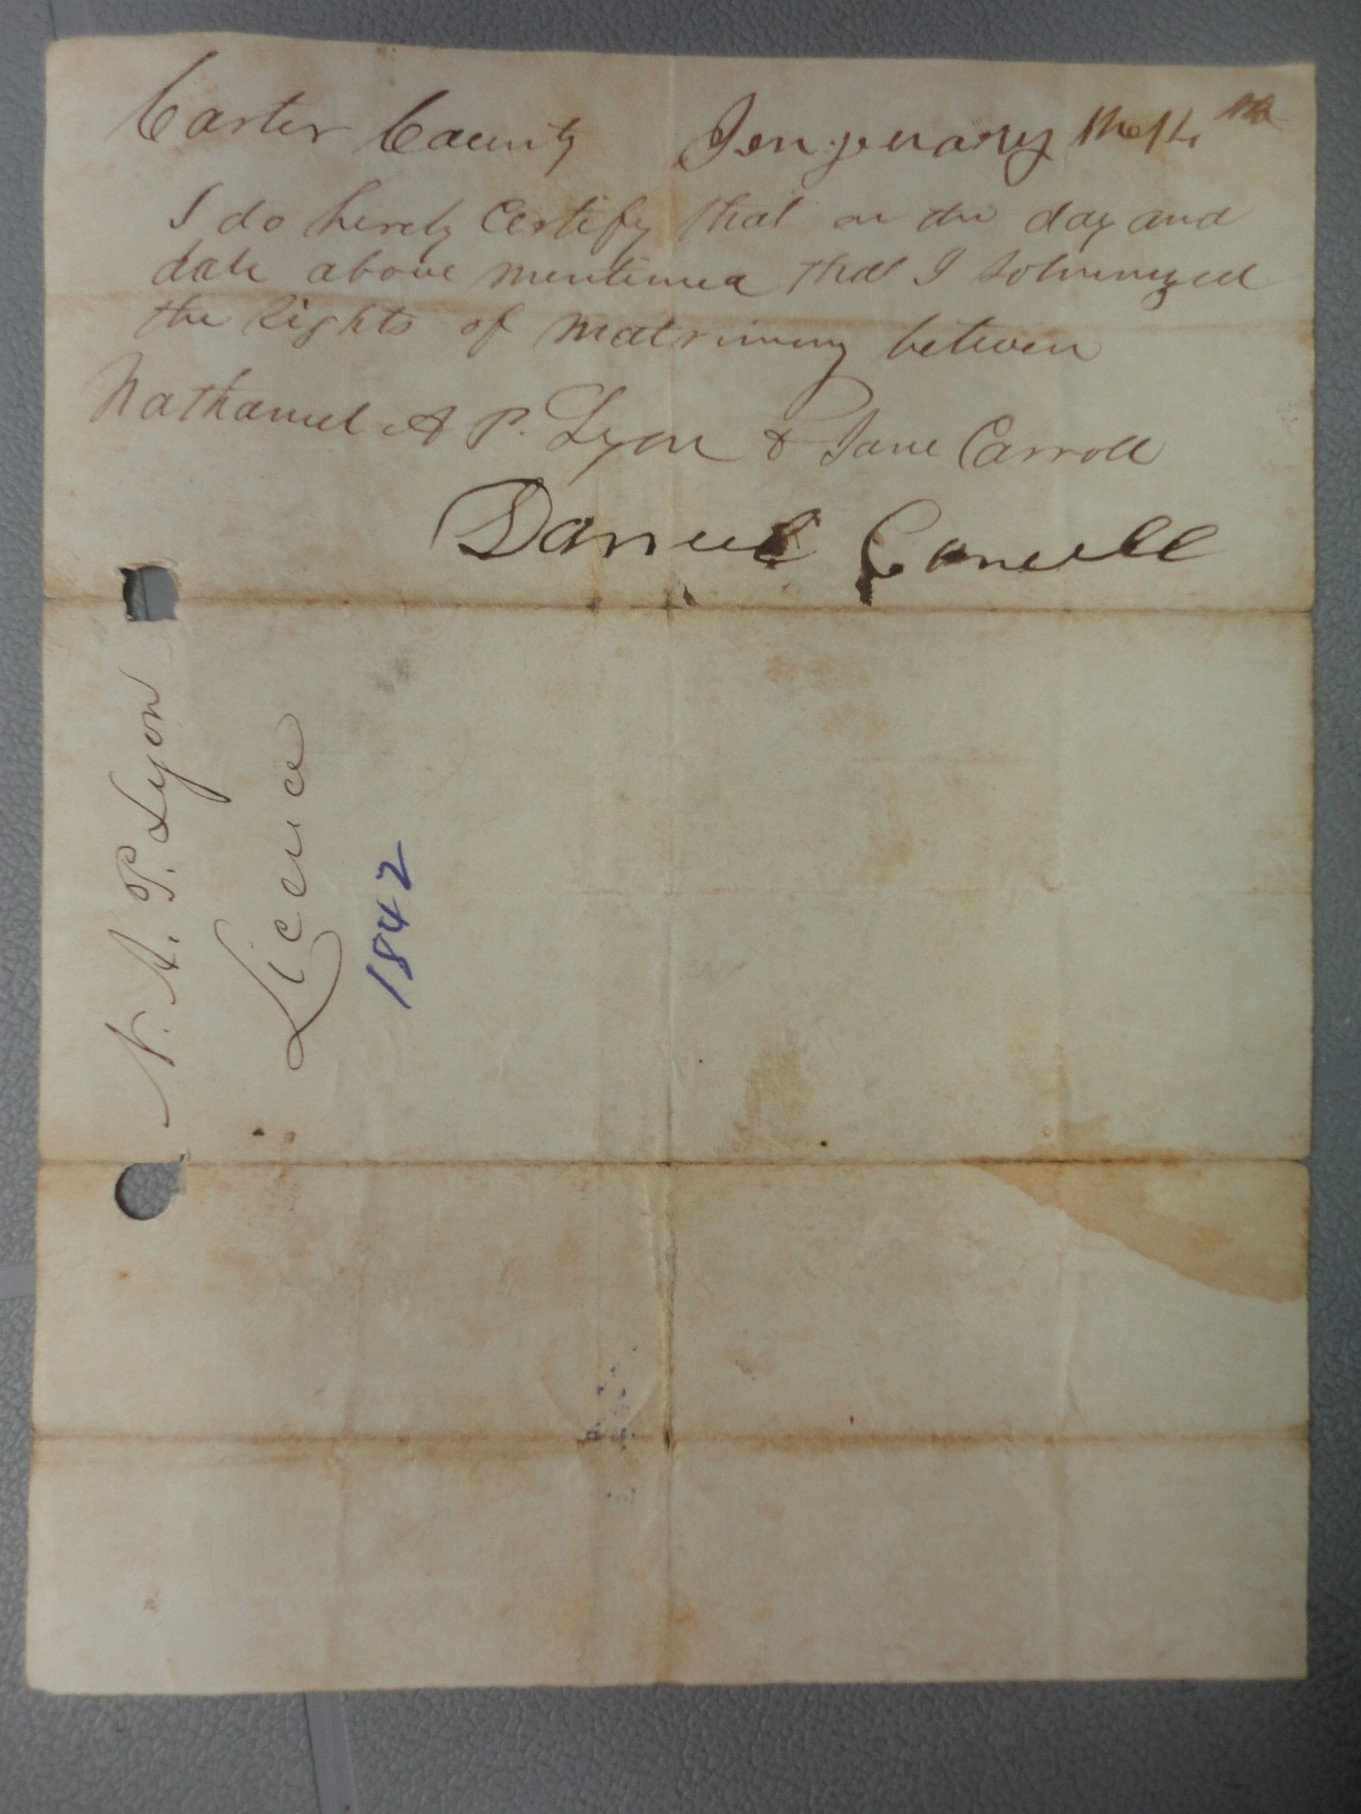 Carter County Jengenary the
I do herely Certify that on the day and
date above mentioned that I Solumnized
the Rights of Matrimony between
Nathaniel A P. Lyon & Jane Carroll
Daniel
N. A. P. Lyon
Licence
1842